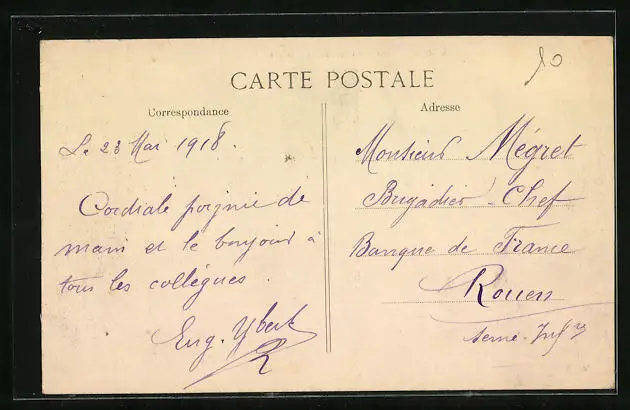 10
CARTE POSTALE
Correspondance
Adresse
Le 23 Mai 1918.
Cordiale poignée de
main et le bonjour à
tous les collègues.
Eug. Ybert
Monsieur Mégret
Brigadier-Chef
Banque de France
Rouen
Seine-Infre